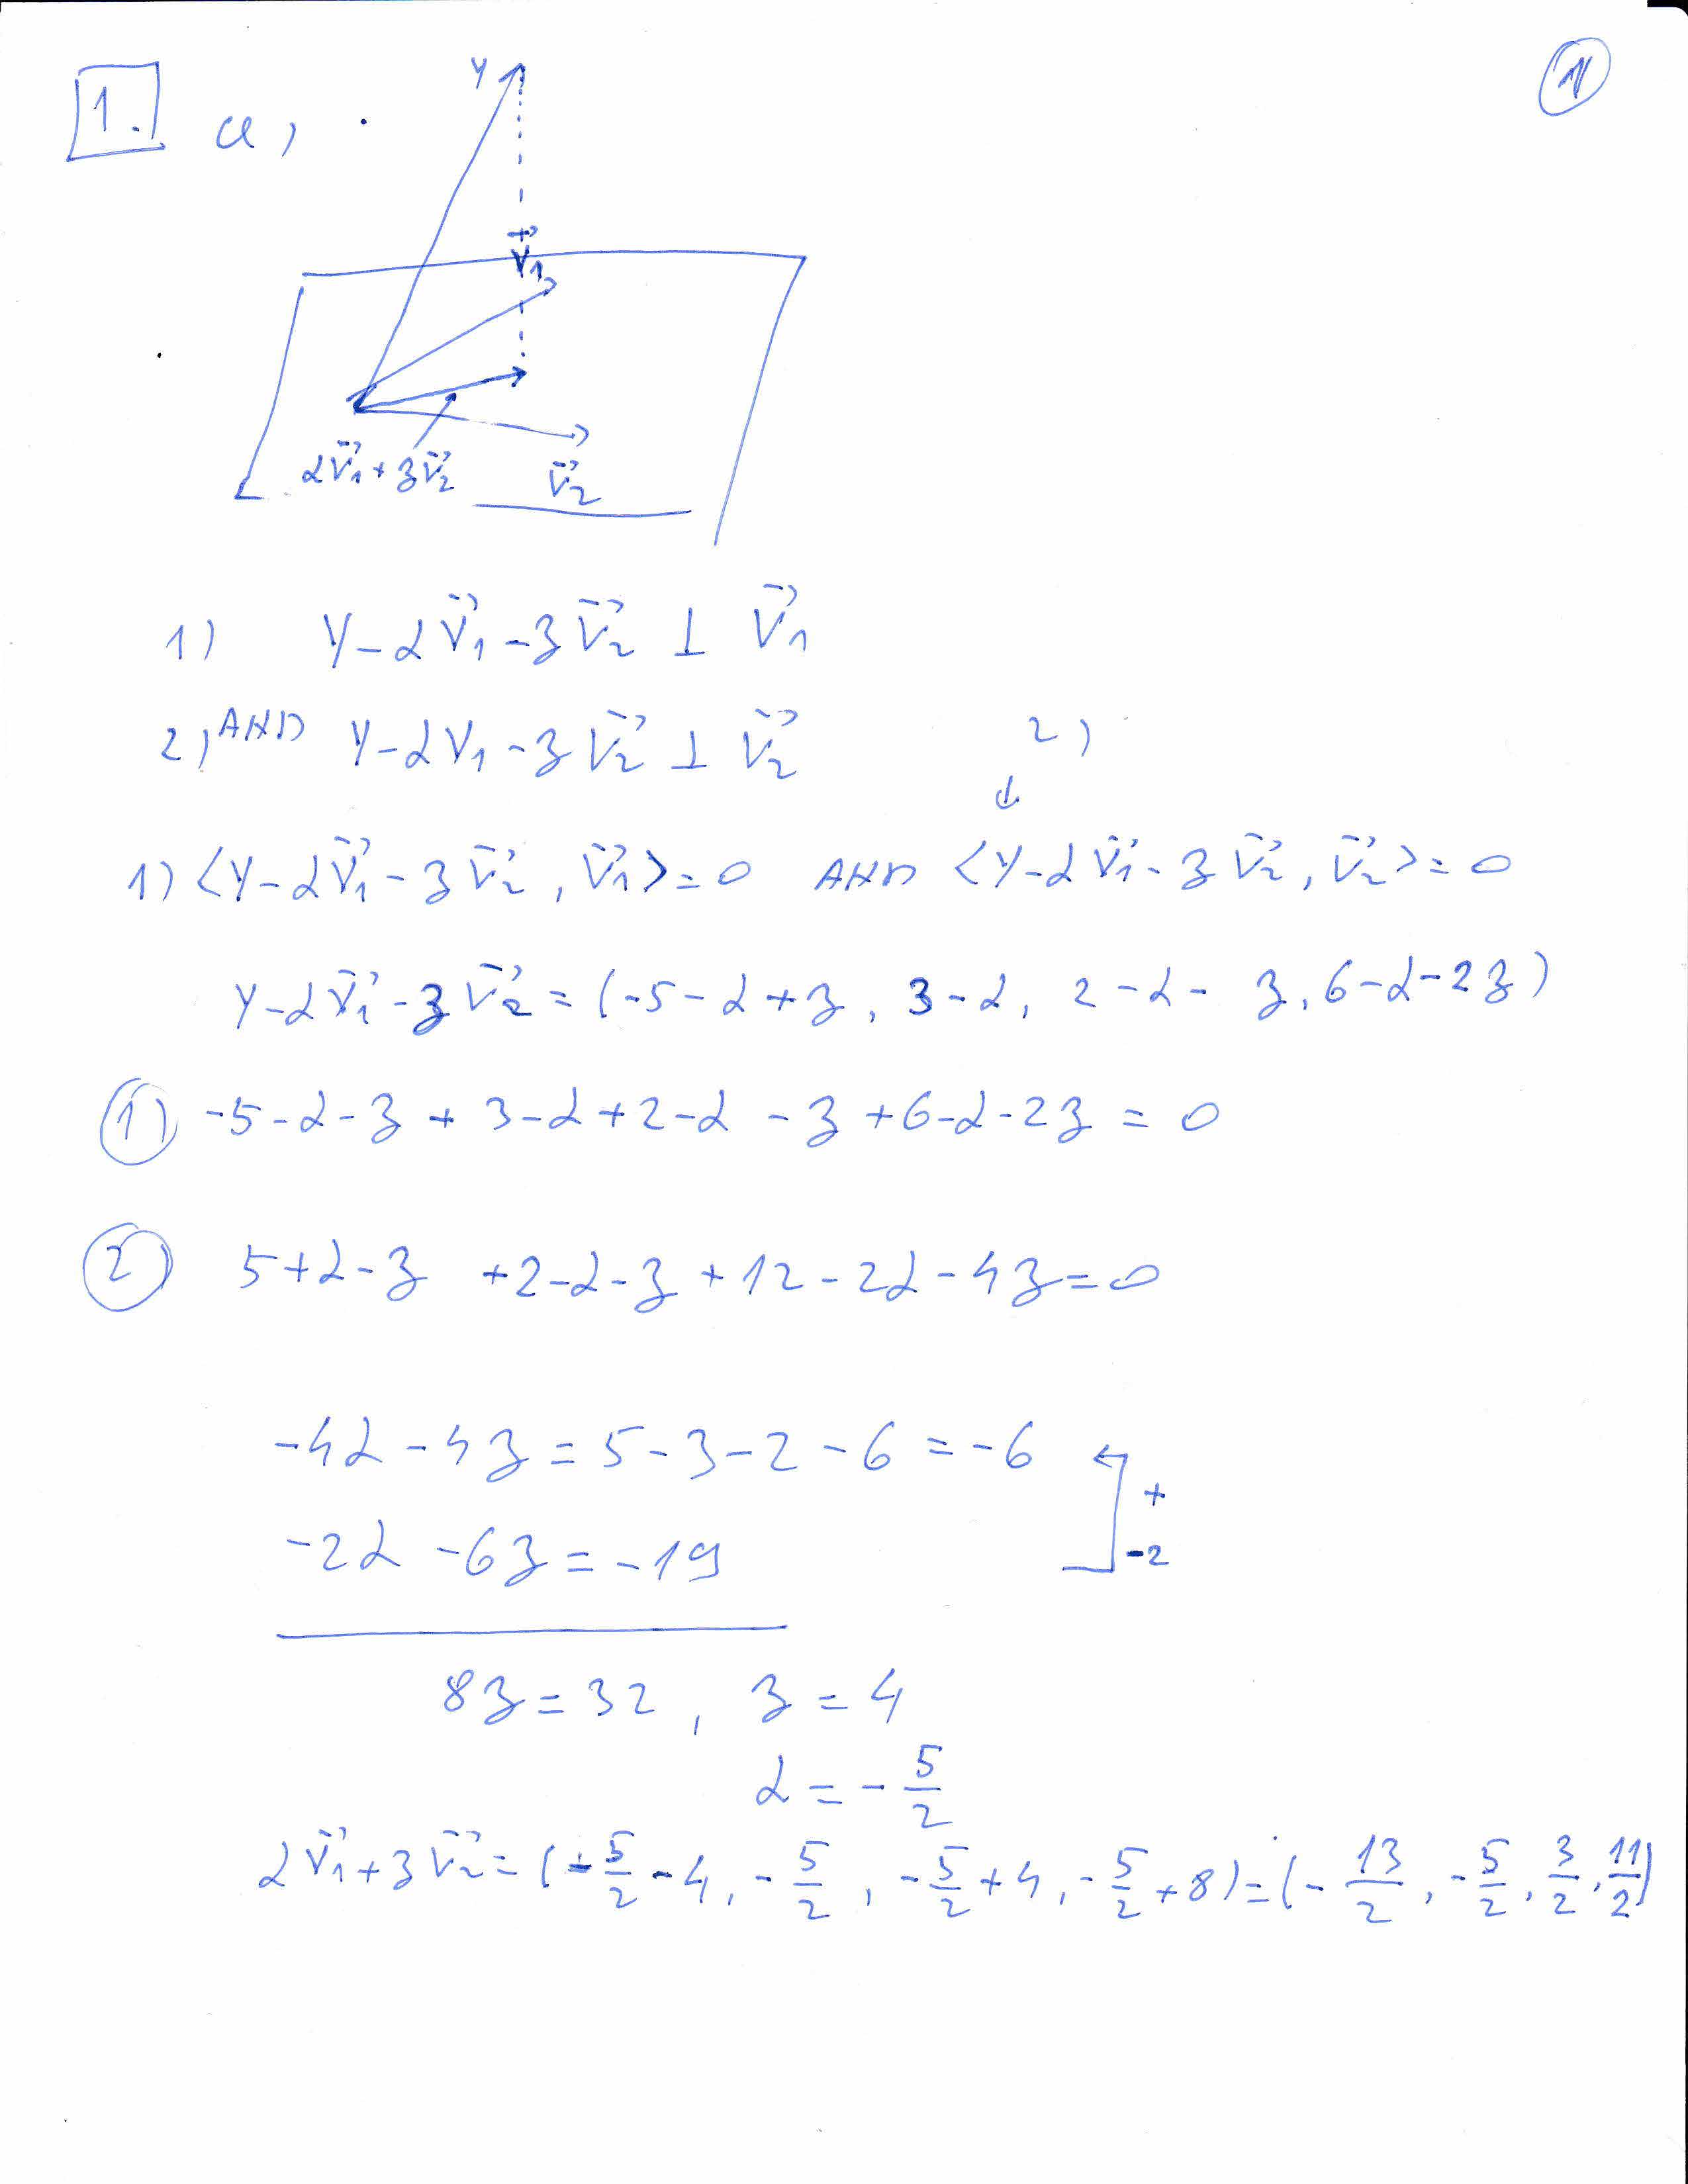 1. a, 1
y
v⃗₁
αv⃗₁ + zv⃗₂ v⃗₂
1) y - αv⃗₁ - zv⃗₂ ⊥ v⃗₁
2) AND y - αv₁ - zv⃗₂ ⊥ v⃗₂ 2)
↓
1) <y - αv⃗₁ - zv⃗₂, v⃗₁> = 0 AND <y - αv⃗₁ - zv⃗₂, v⃗₂> = 0
y - αv⃗₁ - zv⃗₂ = (-5 - α + z, 3 - α, 2 - α - z, 6 - α - 2z)
1) -5 - α - z + 3 - α + 2 - α - z + 6 - α - 2z = 0
2) 5 + α - z + 2 - α - z + 12 - 2α - 4z = 0
-4α - 4z = 5 - 3 - 2 - 6 = -6 +
-2α - 6z = -19 -2
8z = 32, z = 4
α = -5/2
αv⃗₁ + zv⃗₂ = (-5/2 - 4, -5/2, -5/2 + 4, -5/2 + 8) = (-13/2, -5/2, 3/2, 11/2)